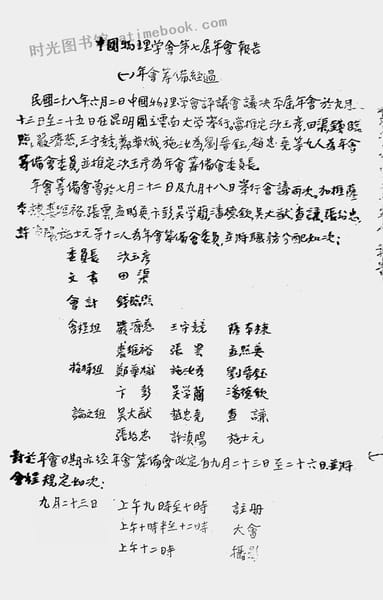 时光图书馆 atimebook.com
中國物理学會第七届年會報告
(一)年會籌備經過
民國二十八年六月二日中國物理学會評議會議决本届年會於九月二
十三日至二十五日在昆明國立雲南大学举行。當推定沙玉彦,田渠,錢臨
照,嚴濟慈,王守競,鄭華熾,施汝為,劉晋鈺,趙忠堯等九人為年會
籌備會委員,並推定沙玉彦為年會籌備會委員長。
年會籌備會曾於七月二十二日及九月十八日举行會議两次。加推薩
本棟,裘維裕,張雲,孟昭英,卞彭,吴学藺,潘德欽,吴大猷,查謙,張紹忠,
許浈陽,施士元等十二人為年會籌備會委員,並將職務分配如次:
委員長 沙玉彦
文書 田渠
會計 錢臨照
會程組 嚴濟慈 王守競 薩本棟
裘維裕 張雲 孟昭英
招待組 鄭華熾 施汝為 劉晋鈺
卞彭 吴学藺 潘德欽
論文組 吴大猷 趙忠堯 查謙
張紹忠 許浈陽 施士元
對於年會日期亦经年會籌備會改定自九月二十三日至二十六日,並將
會程規定如次:
九月二十三日 上午九時至十時 註册
上午十時半至十二時 大會
上午十二時 攝影